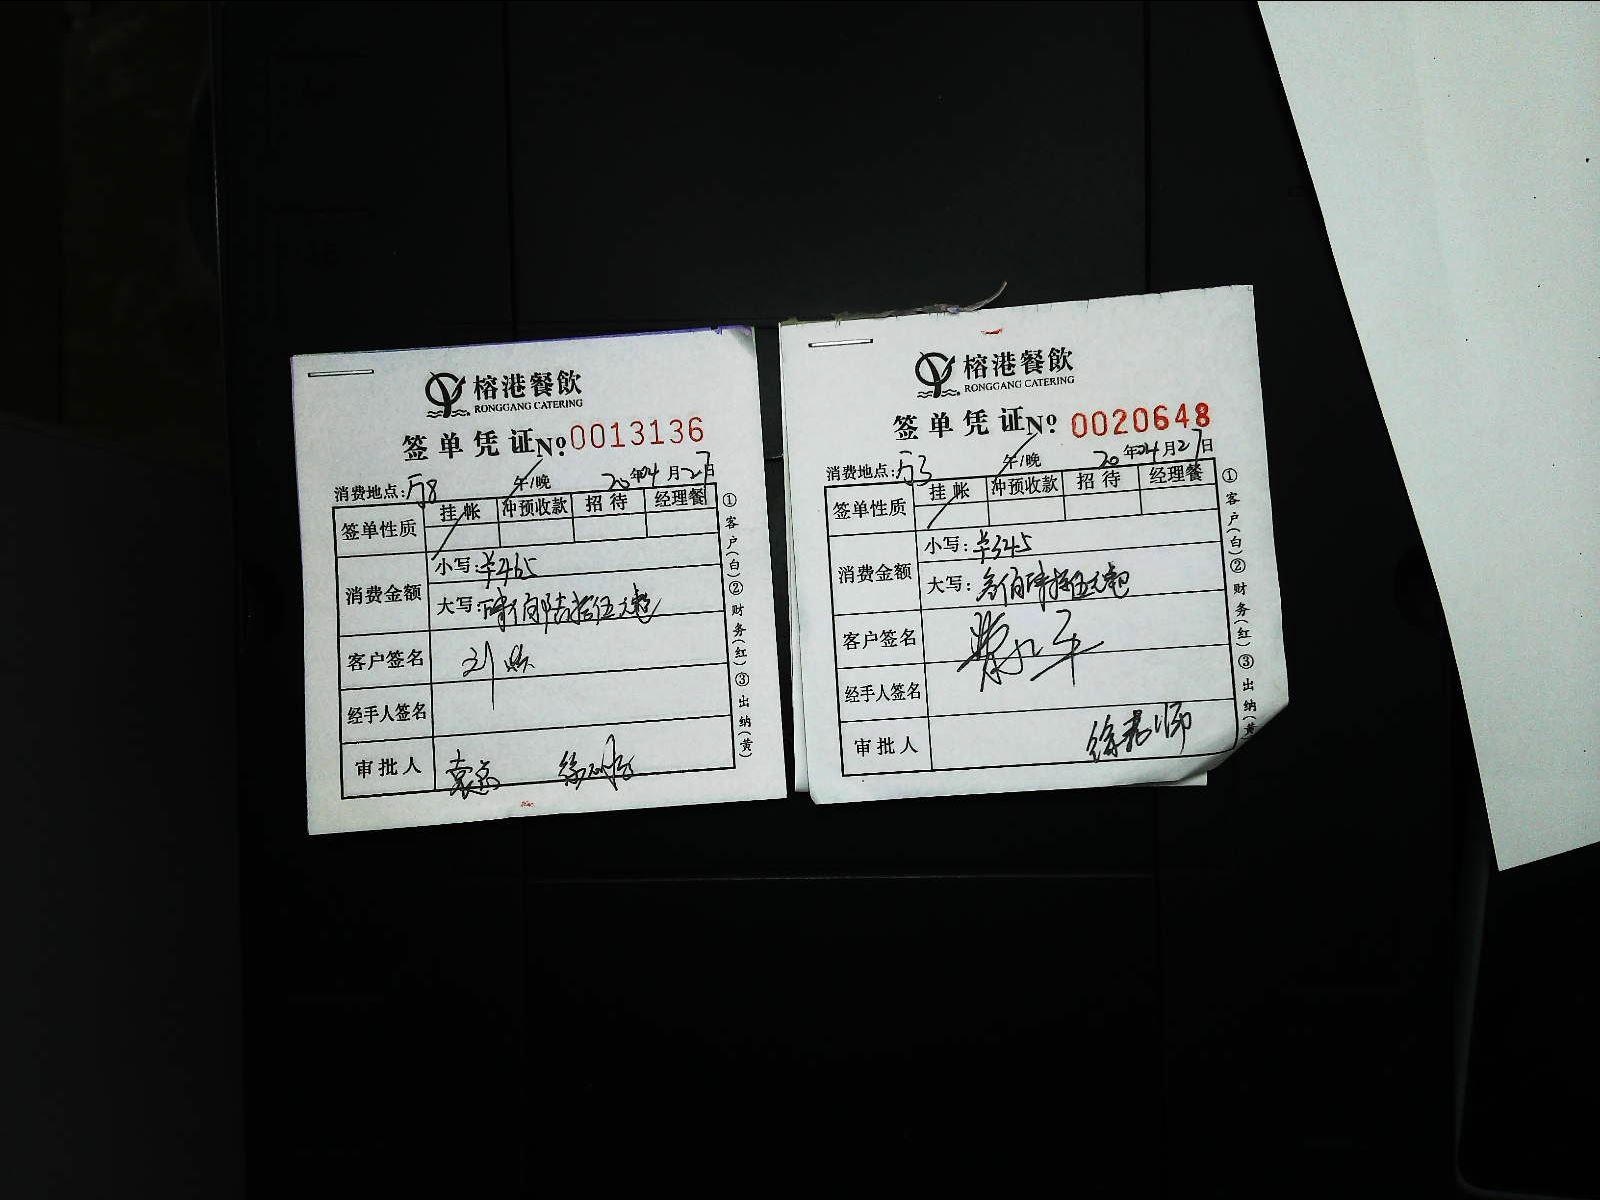 榕港餐飲
RONGGANG CATERING
签单凭证 No 0013136
消费地点: 午/晚 20年04月27日
签单性质 挂帐 冲预收款 招待 经理餐
消费金额 小写: 465
大写: 肆佰陆拾伍元
客户签名 刘
经手人签名
审批人 袁总 徐
①客户(白)②财务(红)③出纳(黄)
榕港餐飲
RONGGANG CATERING
签单凭证 No 0020648
消费地点: 午/晚 20年04月27日
签单性质 挂帐 冲预收款 招待 经理餐
消费金额 小写: 345
大写: 叁佰肆拾伍元
客户签名
经手人签名
审批人 徐 师
①客户(白)②财务(红)③出纳(黄)